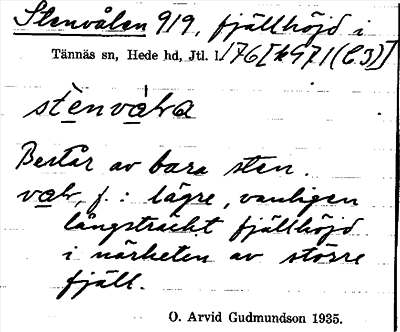 Stenvålen 919, fjällhöjd i
Tännäs sn, Hede hd, Jtl. l.
stènvàlva
Består av bara sten.
valv, f.: lägre, vanligen
långsträckt fjällhöjd
i närheten av större
fjäll.
O. Arvid Gudmundson 1935.